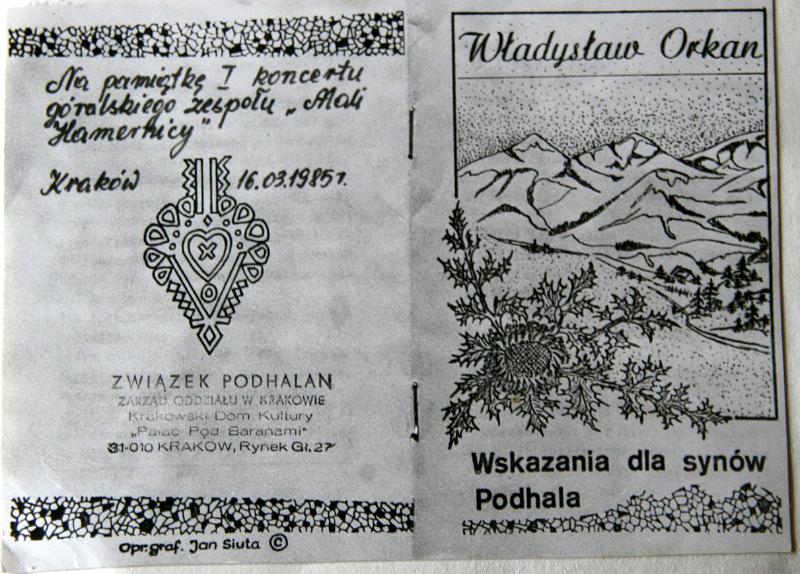 Na pamiątkę I koncertu
góralskiego zespołu „Mali
Hamernicy"
Kraków 16.03.1985r.
ZWIĄZEK PODHALAN
ZARZĄD ODDZIAŁU W KRAKOWIE
Krakowski Dom Kultury
„Pałac Pod Baranami"
31-010 KRAKÓW, Rynek Gł. 27
Opr. graf. Jan Siuta ©
Władysław Orkan
Wskazania dla synów
Podhala